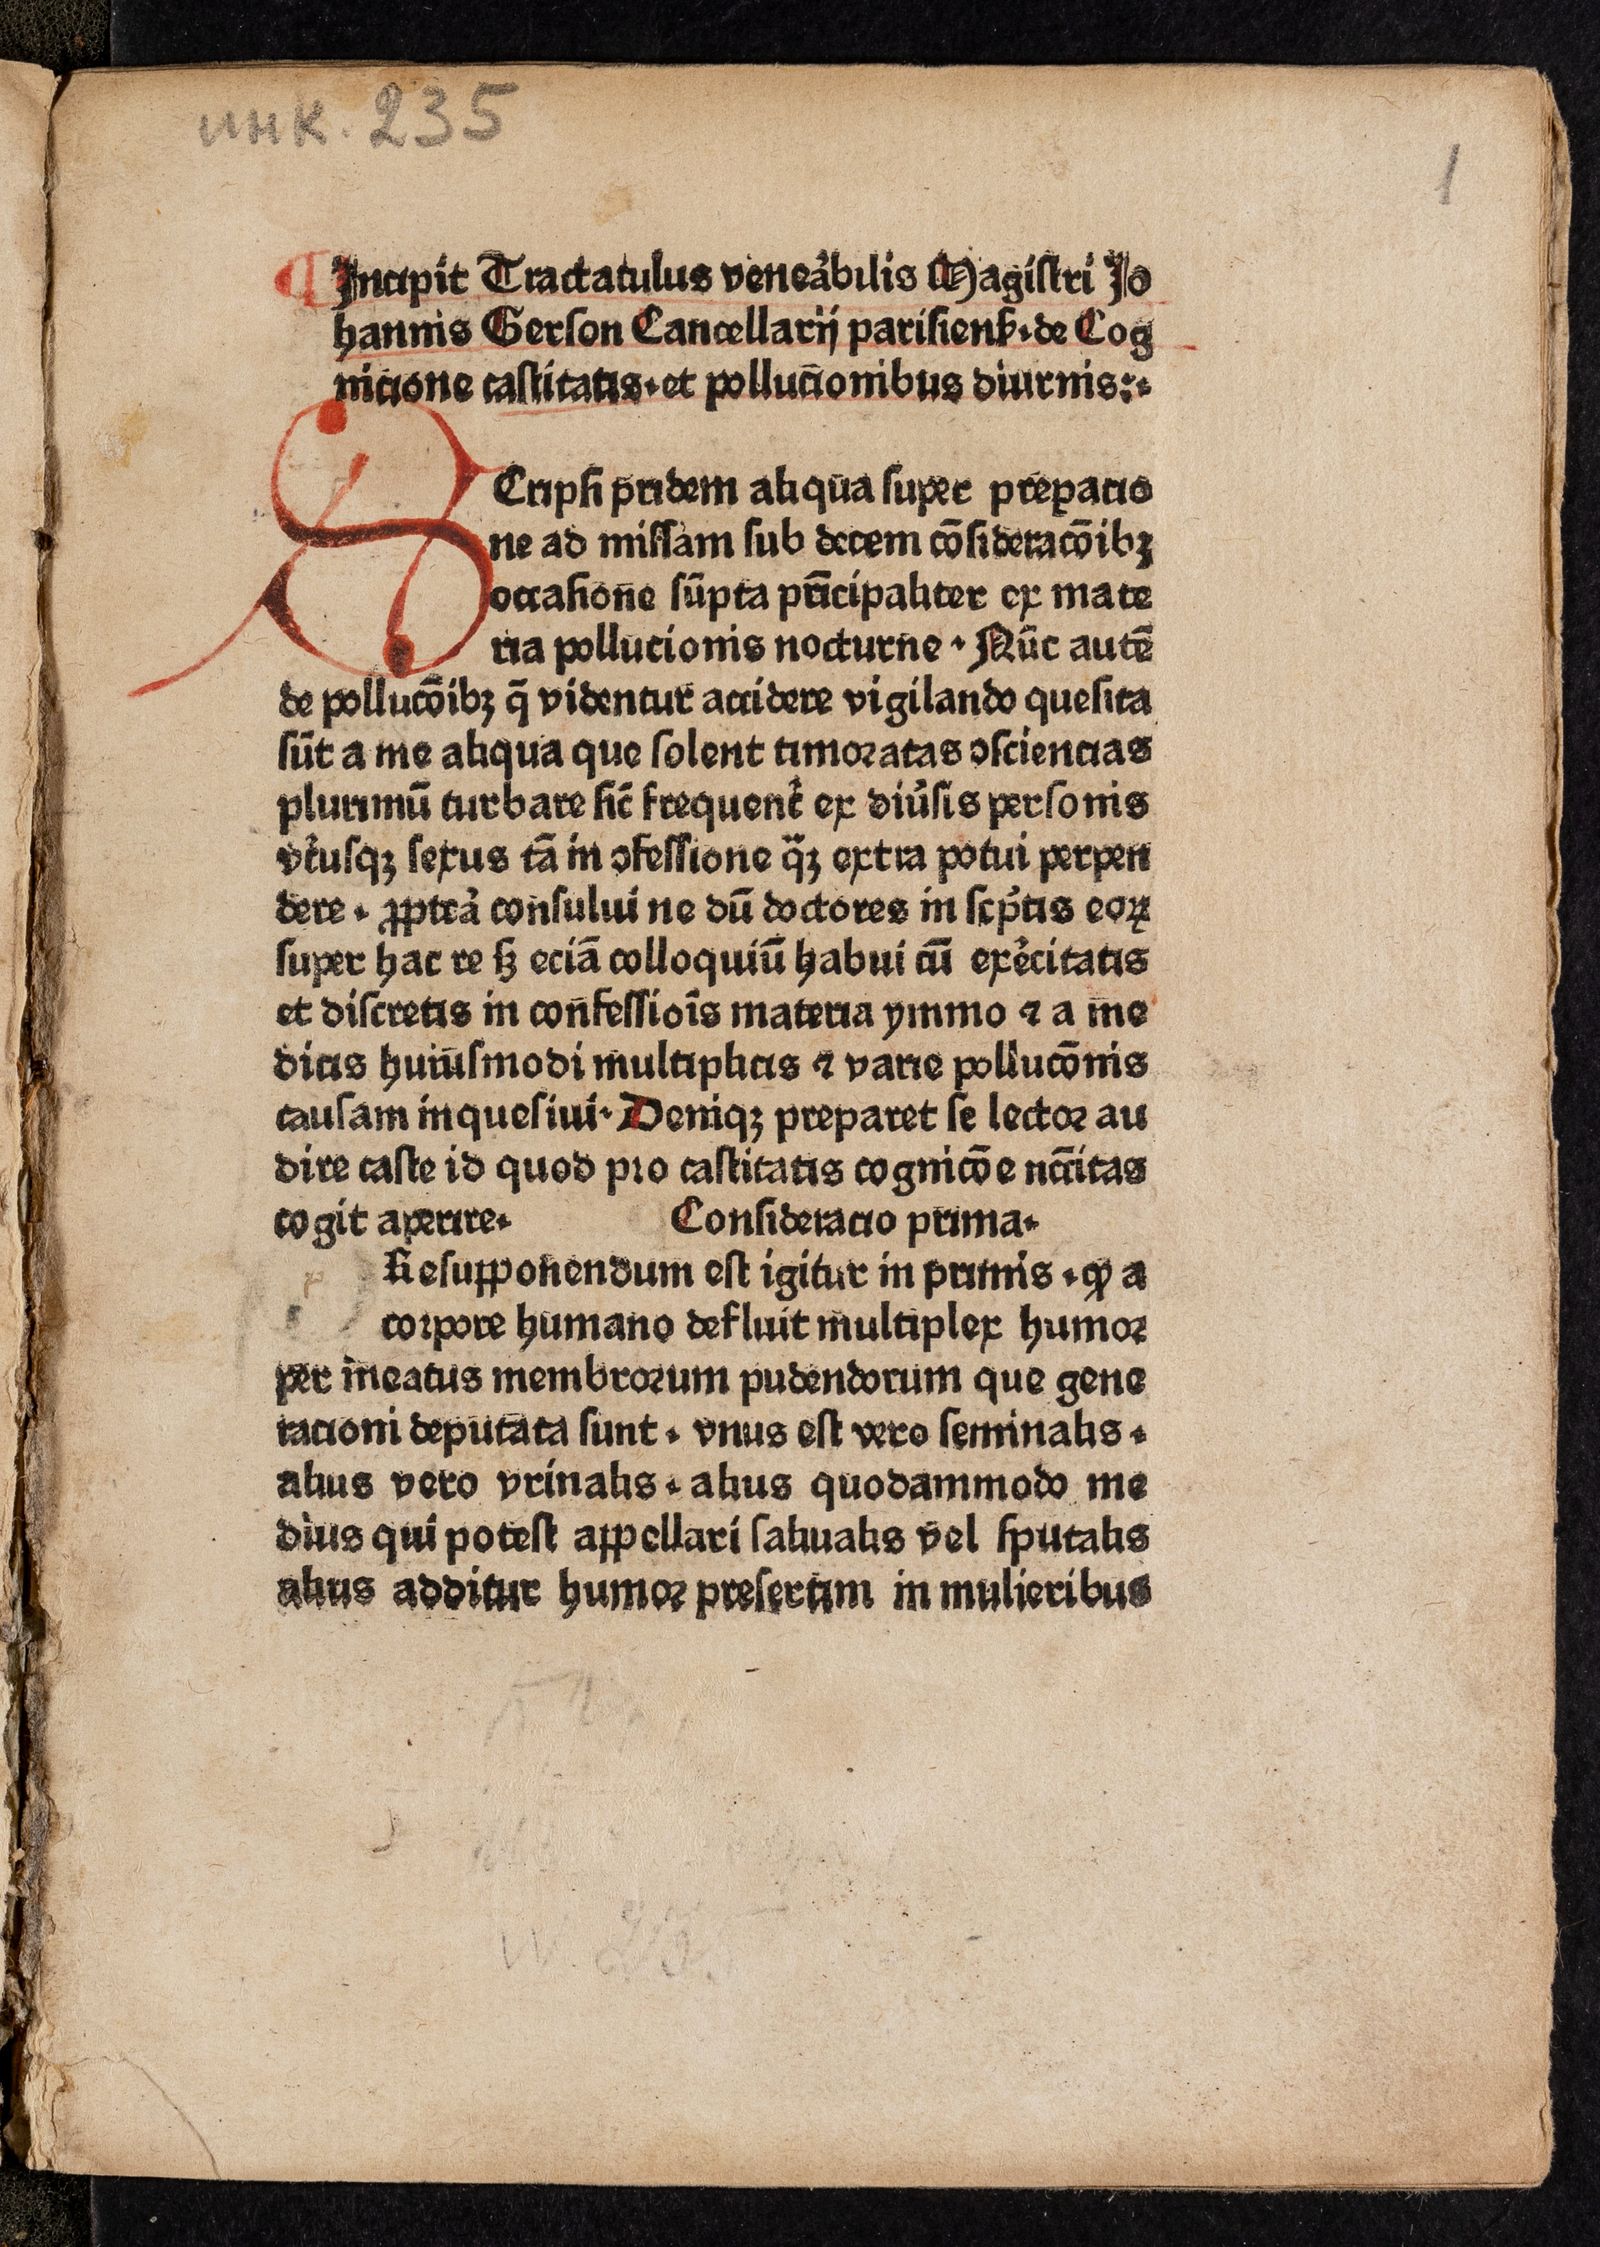 инк. 235
1
¶ Incipit Tractatulus veneãbilis Magistri Jo
hannis Gerson Cancellarij parisienß. de Cog
nicione castitatis. et pollucionibus diurnis:.
SCripsi pridem aliqua super preparacio
ne ad missam sub decem cōsideracōibꝫ
occasione sūpta prīcipaliter ex mate
ria pollucionis nocturne. Nūc autē
de pollucōibꝫ q̄ videntur accidere vigilando quesita
sūt a me aliqua que solent timoratas ↄsciencias
plurimū turbare sic̄ frequent᷑ ex diu᷑sis personis
vt᷑usqꝫ sexus tā in ↄfessione qᷓꝫ extra potui perpen
dere. ꝓpterᷓ consului ne dū doctores in sc͛ptis eoꝝ
super hac re sꝫ eciā colloquiū habui cū ex᷑citatis
et discretis in confessiōis materia ymmo ⁊ a me
dicis huiusmodi multiplicis ⁊ varie pollucōnis
causam inquesiui. Deniqꝫ preparet se lector au
dire caste id quod pro castitatis cognicōe nccītas
cogit aperire. Consideracio prima.
Resupponendum est igitur in primis. ꝙ a
corpore humano defluit multiplex humor
per meatus membrorum pudendorum que gene
racioni deputata sunt. vnus est vero seminalis.
alius vero vrinalis. alius quodammodo me
dius qui potest appellari saliualis vel sputalis
alius additur humor presertim in mulieribus